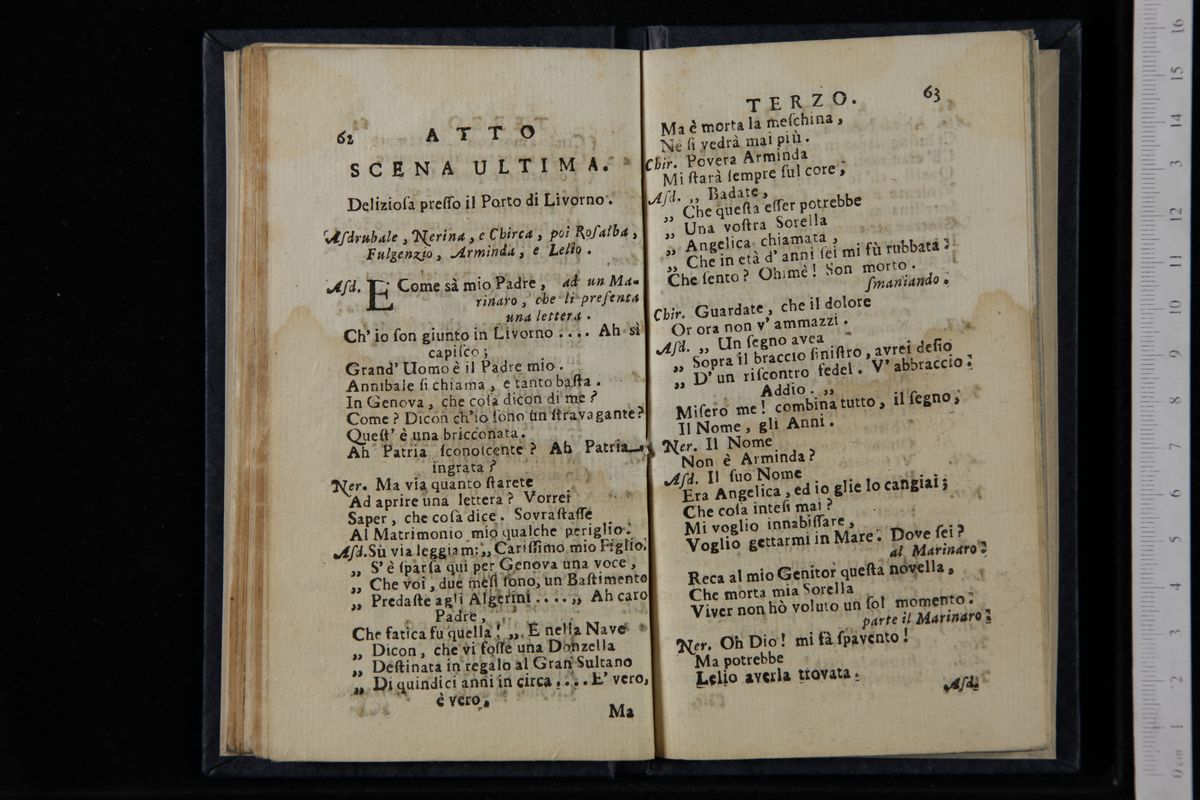 62 ATTO
SCENA ULTIMA.
Delizioſa preſſo il Porto di Livorno.
Aſdrubale, Nerina, e Chirca, poi Roſalba,
Fulgenzio, Arminda, e Lelio.
Aſd. E Come sà mio Padre, ad un Ma-
rinaro, che li preſenta
una lettera.
Ch' io ſon giunto in Livorno .... Ah sì
capiſco;
Grand' Uomo è il Padre mio.
Annibale ſi chiama, e tanto baſta.
In Genova, che coſa dicon di me?
Come? Dicon ch'io ſono un ſtravagante?
Queſt' è una bricconata.
Ah Patria ſconoſcente? Ah Patria
ingrata?
Ner. Ma via quanto ſtarete
Ad aprire una lettera? Vorrei
Saper, che coſa dice. Sovraſtaſſe
Al Matrimonio mio qualche periglio.
Aſd. Sù via leggiam: „ Cariſſimo mio Figlio.
„ S'è ſparſa qui per Genova una voce,
„ Che voi, due meſi ſono, un Baſtimento
„ Predaſte agli Algerini .... „ Ah caro
Padre,
Che fatica fu quella! „ E nella Nave
„ Dicon, che vi foſſe una Donzella
„ Deſtinata in regalo al Gran Sultano
„ Di quindici anni in circa .... E' vero,
è vero.
Ma
TERZO. 63
Ma è morta la meſchina,
Ne ſi vedrà mai più.
Chir. Povera Arminda
Mi ſtarà ſempre ſul core;
Aſd. „ Badate,
„ Che queſta eſſer potrebbe
„ Una voſtra Sorella
„ Angelica chiamata,
„ Che in età d' anni ſei mi fù rubbata:
Che ſento? Ohimè! Son morto.
ſmaniando.
Chir. Guardate, che il dolore
Or ora non v' ammazzi.
Aſd. „ Un ſegno avea
„ Sopra il braccio ſiniſtro, avrei deſio
„ D' un riſcontro fedel. V' abbraccio:
Addio. „
Miſero me! combina tutto, il ſegno,
Il Nome, gli Anni.
Ner. Il Nome
Non è Arminda?
Aſd. Il ſuo Nome
Era Angelica, ed io glie lo cangiai;
Che coſa inteſi mai?
Mi voglio innabiſſare,
Voglio gettarmi in Mare. Dove ſei?
al Marinaro:
Reca al mio Genitor queſta novella,
Che morta mia Sorella
Viver non hò voluto un ſol momento:
parte il Marinaro:
Ner. Oh Dio! mi fà ſpavento!
Ma potrebbe
Lelio averla trovata.
Aſd.
16
15
14
13
12
11
10
9
8
7
6
5
4
3
2
1
0 cm